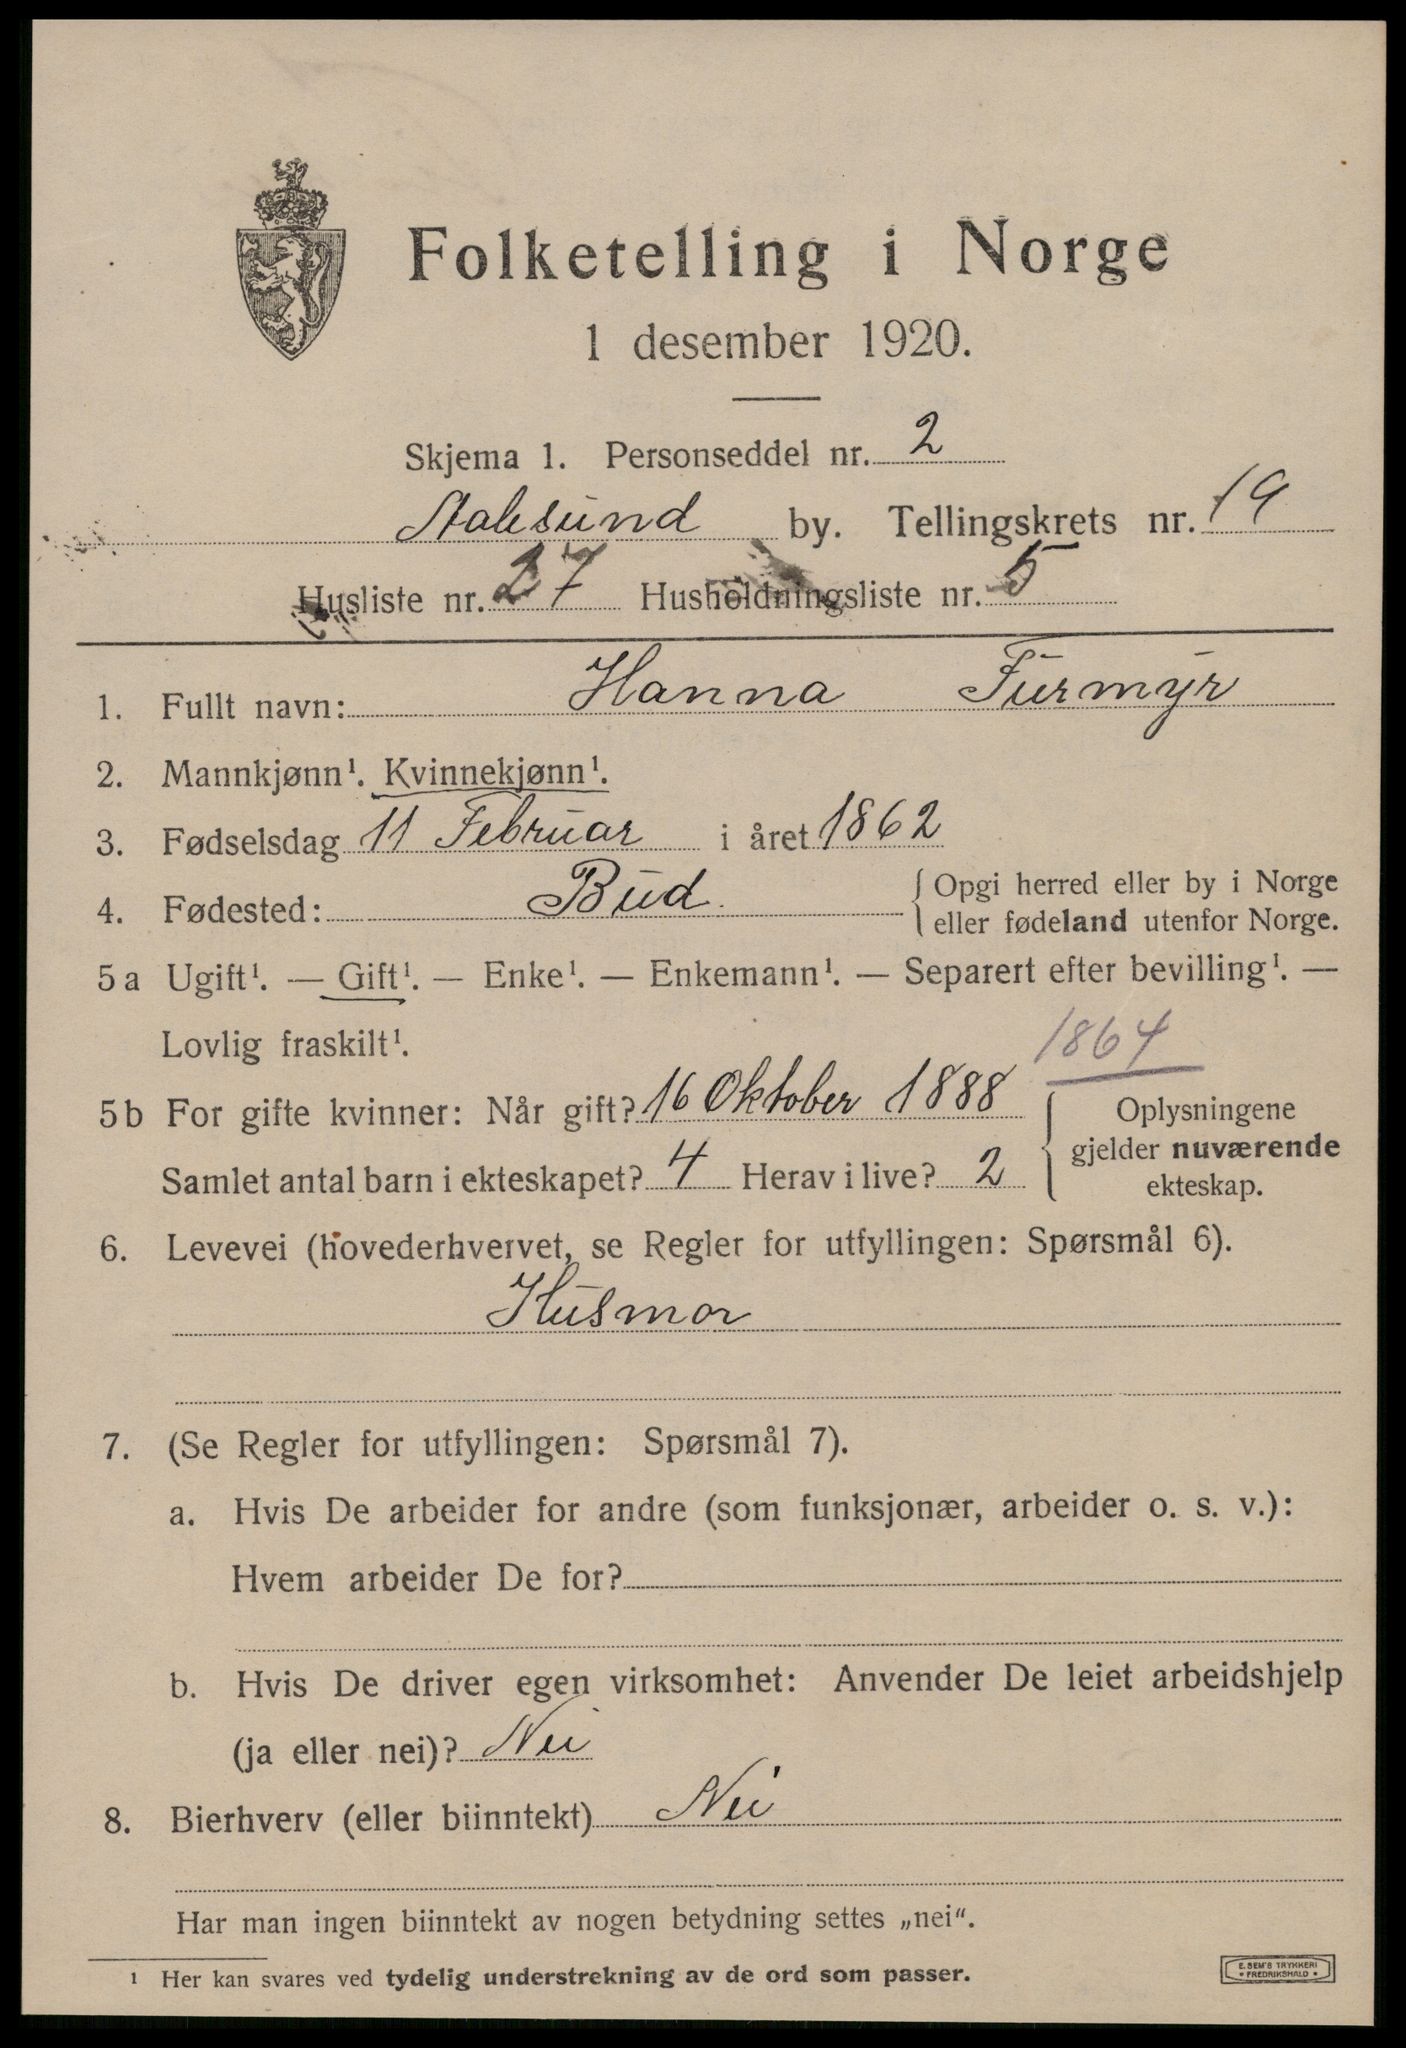 Folketelling i Norge
1 desember 1920.
Skjema 1. Personseddel nr. 2
Aalesund by. Tellingskrets nr. 19
Husliste nr. 27 Husholdningsliste nr. 5
1. Fullt navn: Hanna Furmyr
2. Mannkjønn¹. Kvinnekjønn¹.
3. Fødselsdag 11 Februar i året 1862
4. Fødested: Bud. { Opgi herred eller by i Norge
eller fødeland utenfor Norge.
5a Ugift¹. — Gift¹. — Enke¹. — Enkemann¹. — Separert efter bevilling¹. —
Lovlig fraskilt¹.
1864
5b For gifte kvinner: Når gift? 16 Oktober 1888 { Oplysningene
gjelder nuværende
Samlet antal barn i ekteskapet? 4 Herav i live? 2
ekteskap.
6. Levevei (hovederhvervet, se Regler for utfyllingen: Spørsmål 6).
Husmor
7. (Se Regler for utfyllingen: Spørsmål 7).
a. Hvis De arbeider for andre (som funksjonær, arbeider o. s. v.):
Hvem arbeider De for?
b. Hvis De driver egen virksomhet: Anvender De leiet arbeidshjelp
(ja eller nei)? Nei
8. Bierhverv (eller biinntekt) Nei
Har man ingen biinntekt av nogen betydning settes „nei“.
¹ Her kan svares ved tydelig understrekning av de ord som passer.
E. SEM'S TRYKKERI
* FREDRIKSHALD *